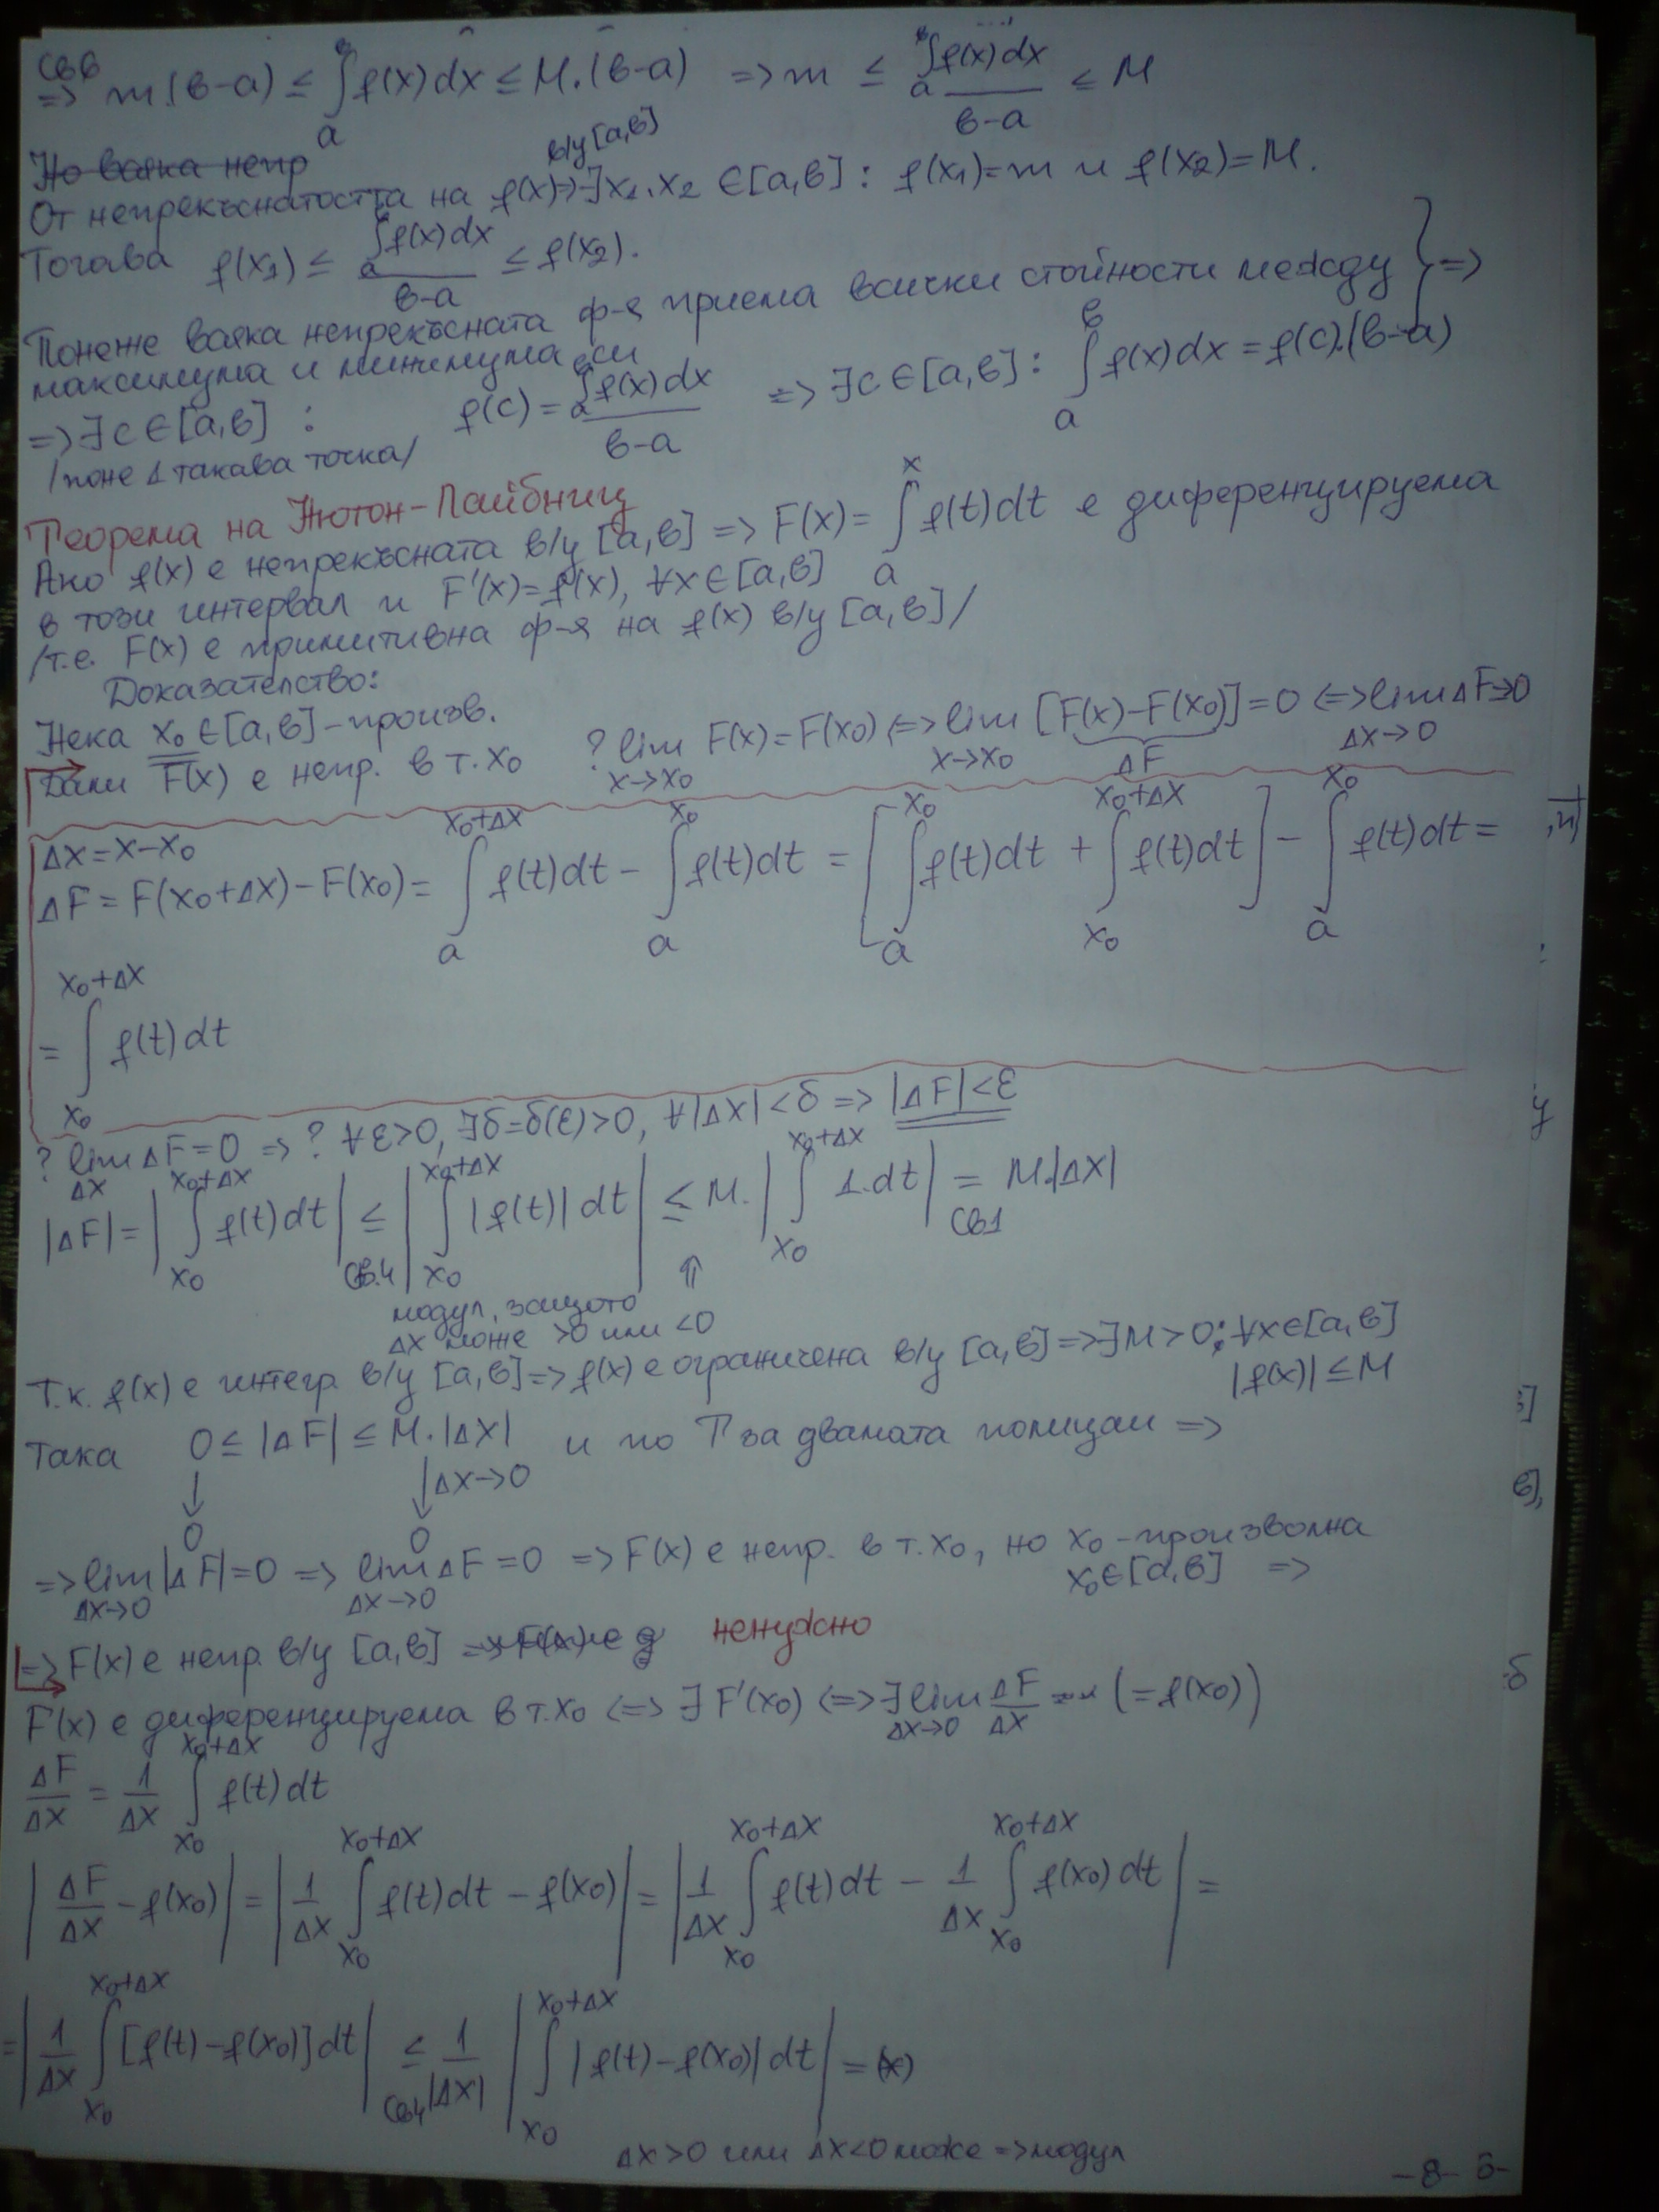 Св6
=> m(в-a) ≤ ∫ₐᵇ f(x)dx ≤ M.(в-a) => m ≤ ∫ₐᵇ f(x)dx / (в-a) ≤ M
Но всяка непр
От непрекъснатостта на f(x) в/у [a,в] => ∃x₁,x₂ ∈[a,в] : f(x₁)=m и f(x₂)=M.
Тогава f(x₁) ≤ ∫ₐ f(x)dx / (в-a) ≤ f(x₂).
Понеже всяка непрекъсната ф-я приема всички стойности между } =>
максимума и минимума си
=> ∃c∈[a,в] : f(c) = ∫ₐᵇ f(x)dx / (в-a) => ∃c∈[a,в] : ∫ₐᵇ f(x)dx = f(c).(в-a)
/поне 1 такава точка/
Теорема на Нютон-Лайбниц
Ако f(x) е непрекъсната в/у [a,в] => F(x) = ∫ₐˣ f(t)dt е диференцируема
в този интервал и F'(x)=f(x), ∀x∈[a,в]
/т.е. F(x) е примитивна ф-я на f(x) в/у [a,в]/
Доказателство:
Нека x₀∈[a,в]-произв.
Дали F(x) е непр. в т. x₀ ? lim_{x→x₀} F(x)=F(x₀) <=> lim_{x→x₀} [F(x)-F(x₀)]=0 <=> lim_{Δx→0} ΔF=0
ΔF
Δx=x-x₀
ΔF = F(x₀+Δx)-F(x₀) = ∫ₐ^{x₀+Δx} f(t)dt - ∫ₐ^{x₀} f(t)dt = [∫ₐ^{x₀} f(t)dt + ∫_{x₀}^{x₀+Δx} f(t)dt] - ∫ₐ^{x₀} f(t)dt =
= ∫_{x₀}^{x₀+Δx} f(t)dt
? lim_{Δx} ΔF=0 => ? ∀ε>0, ∃δ=δ(ε)>0, ∀|Δx|<δ => |ΔF|<ε
|ΔF| = |∫_{x₀}^{x₀+Δx} f(t)dt| ≤_{Св.4} |∫_{x₀}^{x₀+Δx} |f(t)|dt| ≤ M.|∫_{x₀}^{x₀+Δx} 1.dt| =_{Св1} M.|Δx|
модул, защото ⇑
Δx може >0 или <0
Т.к. f(x) е интегр. в/у [a,в] => f(x) е ограничена в/у [a,в] => ∃M>0: ∀x∈[a,в]
|f(x)| ≤ M
Така 0 ≤ |ΔF| ≤ M.|Δx| и по Т за двамата полицаи =>
↓ ↓ Δx→0
0 0
=> lim_{Δx→0} |ΔF|=0 => lim_{Δx→0} ΔF=0 => F(x) е непр. в т. x₀, но x₀-произволна
x₀∈[a,в] =>
=> F(x) е непр. в/у [a,в] => F(x) е д ненужно
F(x) е диференцируема в т. x₀ <=> ∃F'(x₀) <=> ∃ lim_{Δx→0} ΔF/Δx (=f(x₀))
ΔF/Δx = 1/Δx ∫_{x₀}^{x₀+Δx} f(t)dt
|ΔF/Δx - f(x₀)| = |1/Δx ∫_{x₀}^{x₀+Δx} f(t)dt - f(x₀)| = |1/Δx ∫_{x₀}^{x₀+Δx} f(t)dt - 1/Δx ∫_{x₀}^{x₀+Δx} f(x₀)dt| =
= |1/Δx ∫_{x₀}^{x₀+Δx} [f(t)-f(x₀)]dt| ≤_{Св4} 1/|Δx| |∫_{x₀}^{x₀+Δx} |f(t)-f(x₀)|dt| = (*)
Δx>0 или Δx<0 може => модул
-8-